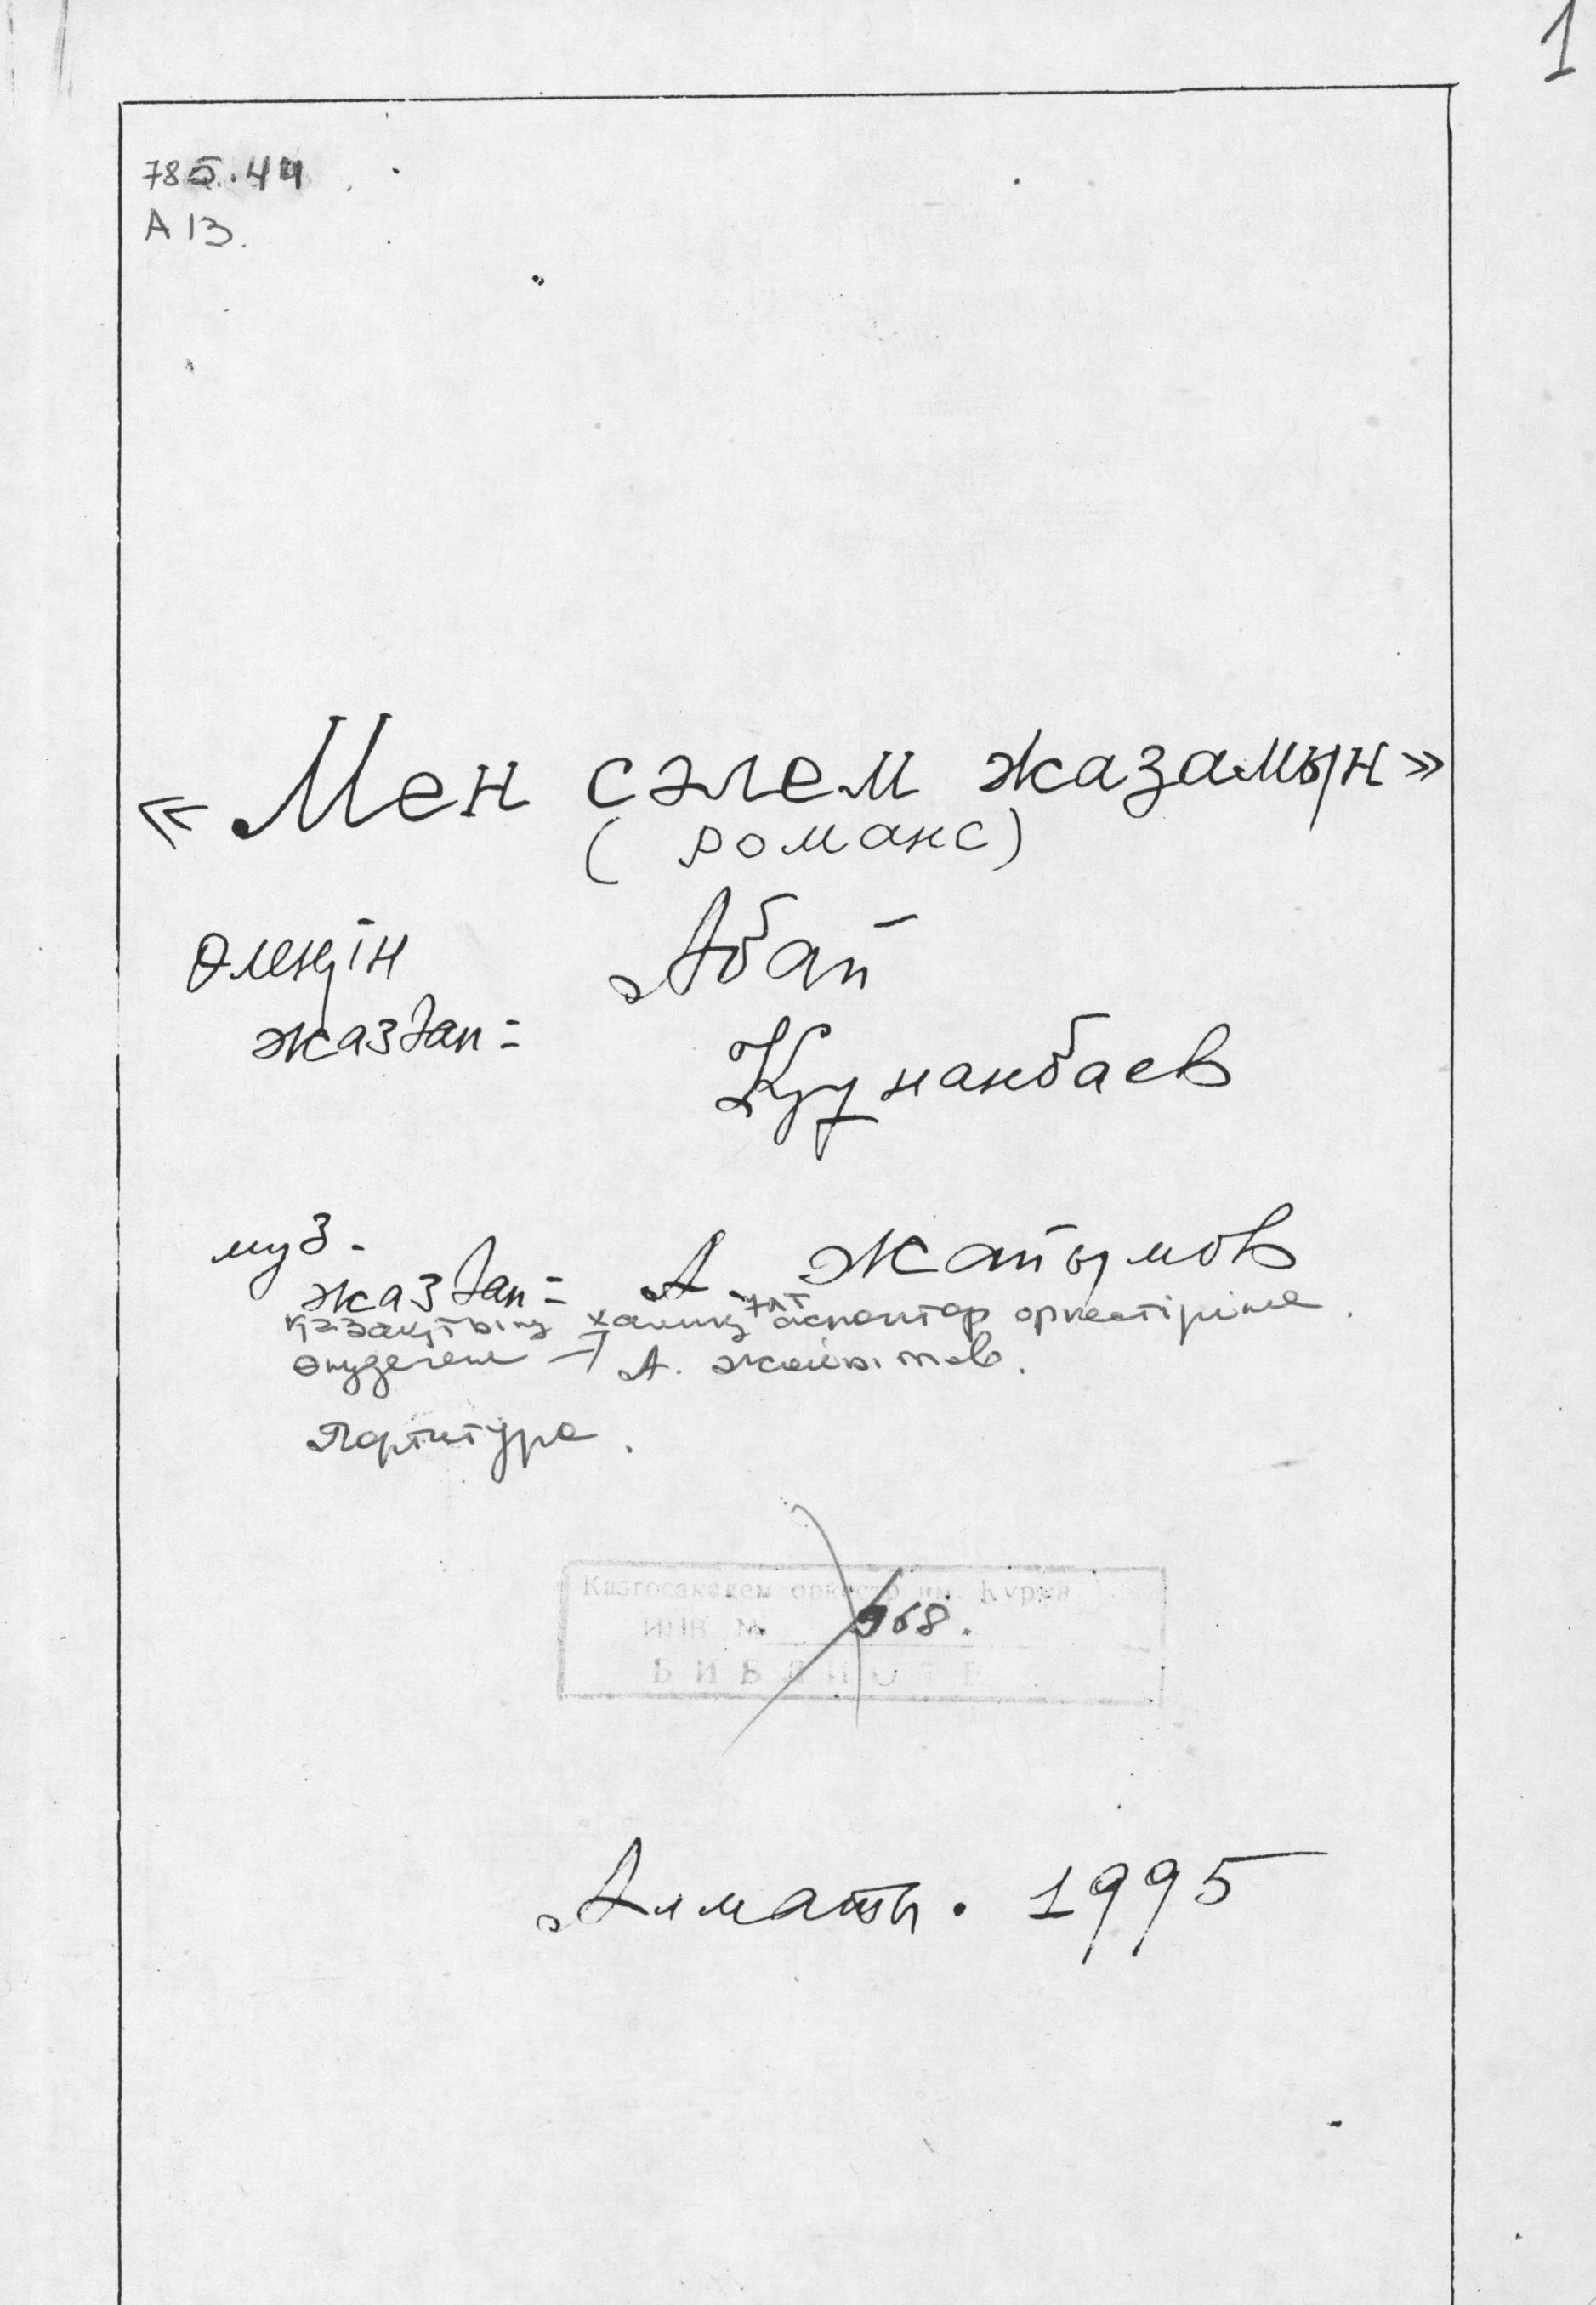 1
785.44
А 13.
«Мен сәлем жазамын»
(романс)
Өлеңін Абай
жазған = Құнанбаев
муз.
жазған = А. Жайымов
қазақтың халық ұлт аспаптар оркестіріне.
өңдеген → А. Жайымов.
Партитура.
Казгосакадем оркестр им. Курма
ИНВ. № 968.
БИБЛИОТЕ
Алматы. 1995